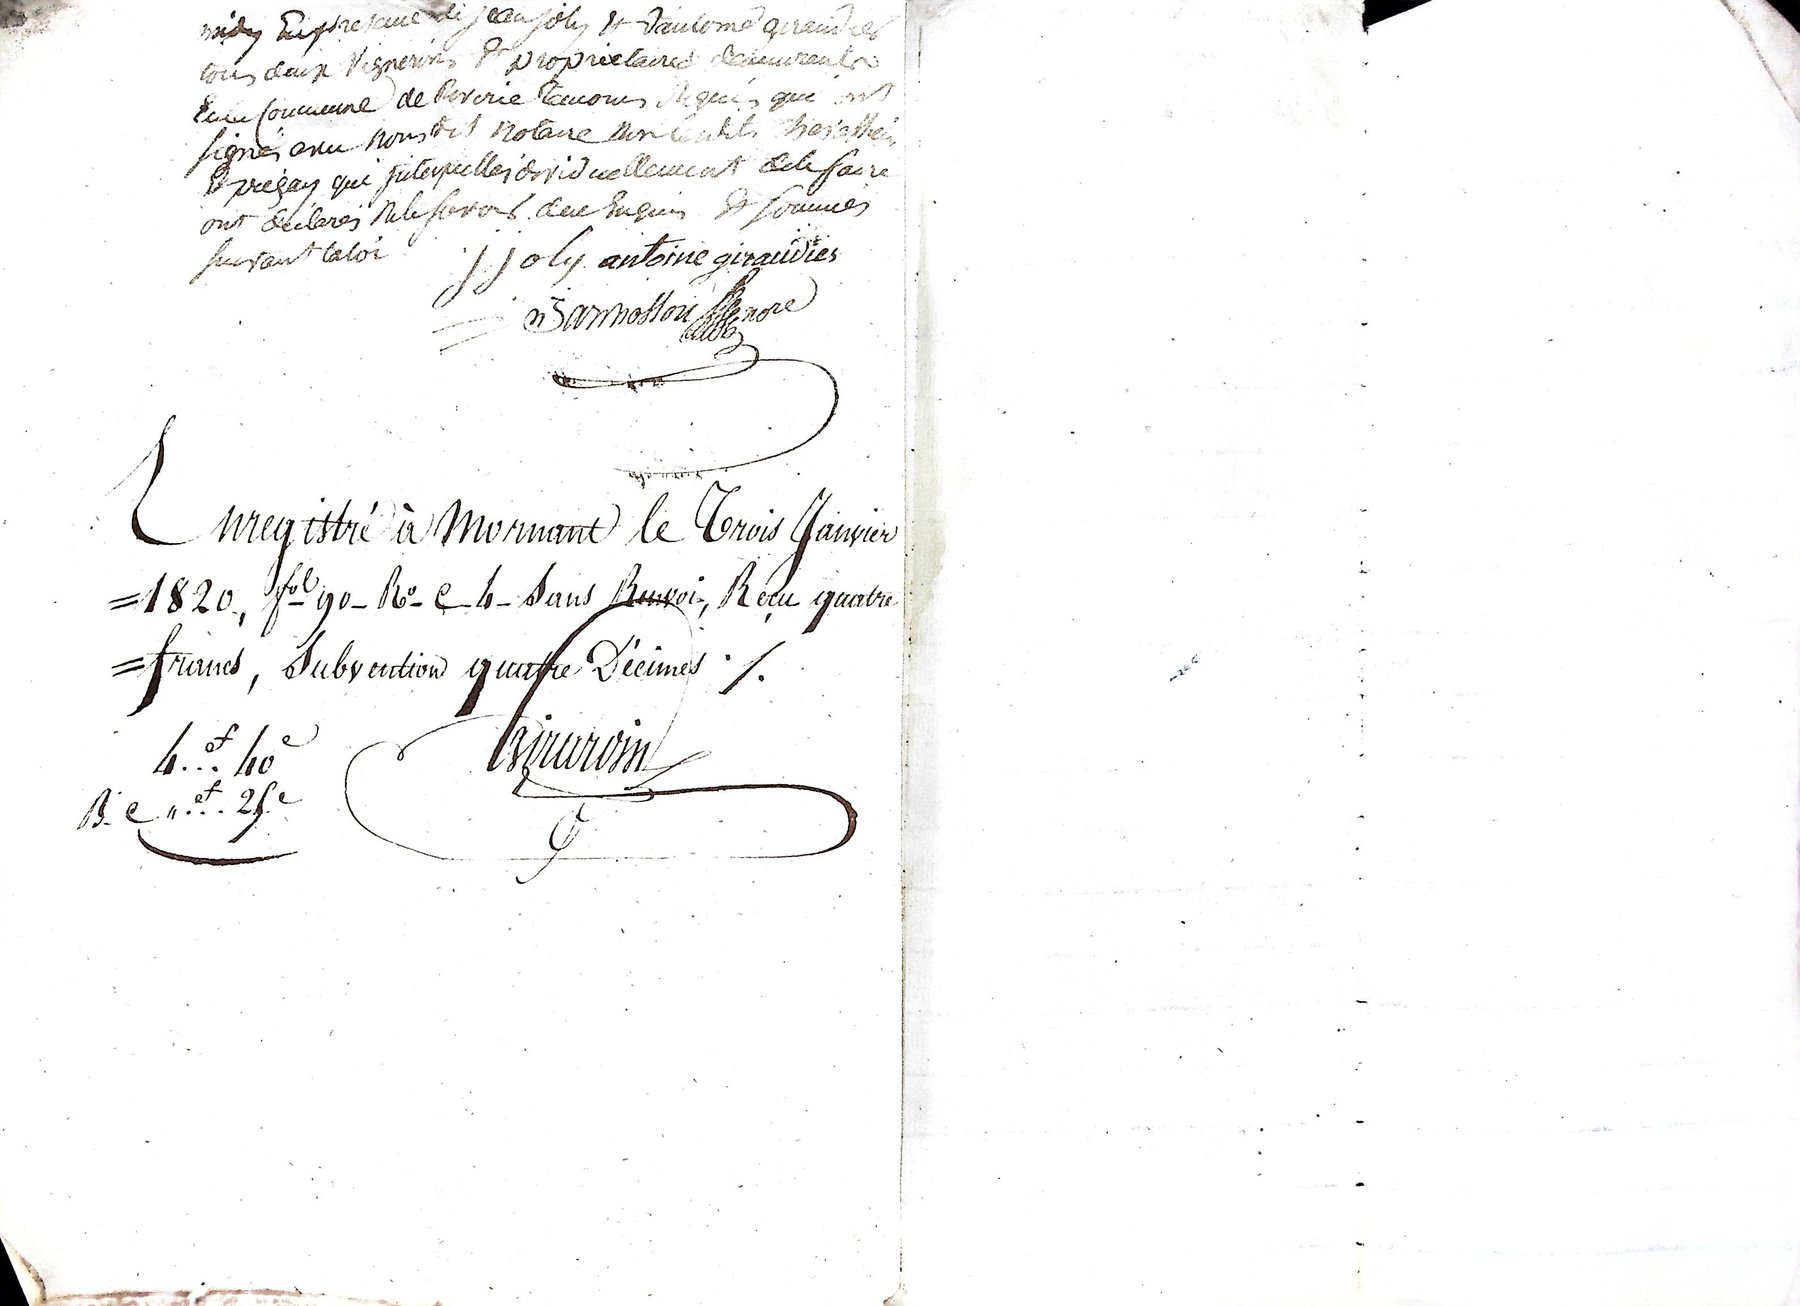 midy En presence de jean joly & dantome giraudier
tous deux vignerons & propriétaires demeurants
En la Commune de Riverie temoins Requis qui ont
signés avec nous dit notaire non lesdits
& qui interpellés individuellement de le faire
ont déclarés ne le savoir de ce Enquis & sommés
suivant la loi
j joly antoine giraudier
nore
Enregistré à Mornant le Trois Janvier
=1820, fol 90 Ro C 4 Sans Renvoi, Reçu quatre
=francs, Subvention quatre Décimes ./.
4..f 40c
B. C "..f. 25c